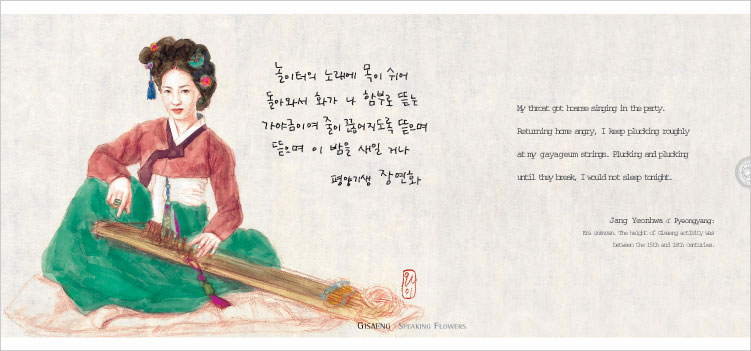 놀이터의 노래에 목이 쉬어
돌아와서 화가 나 함부로 뜯는
가야금이여 줄이 끊어지도록 뜯으며
뜯으며 이 밤을 새일 거나
평양기생 장연화
My throat got hoarse singing in the party.
Returning home angry, I keep plucking roughly
at my gayageum strings. Plucking and plucking
until they break, I would not sleep tonight.
Jang Yeonhwa of Pyeongyang:
Era unknown. The height of Gisaeng activity was
between the 15th and 18th centuries.
GISAENG / SPEAKING FLOWERS